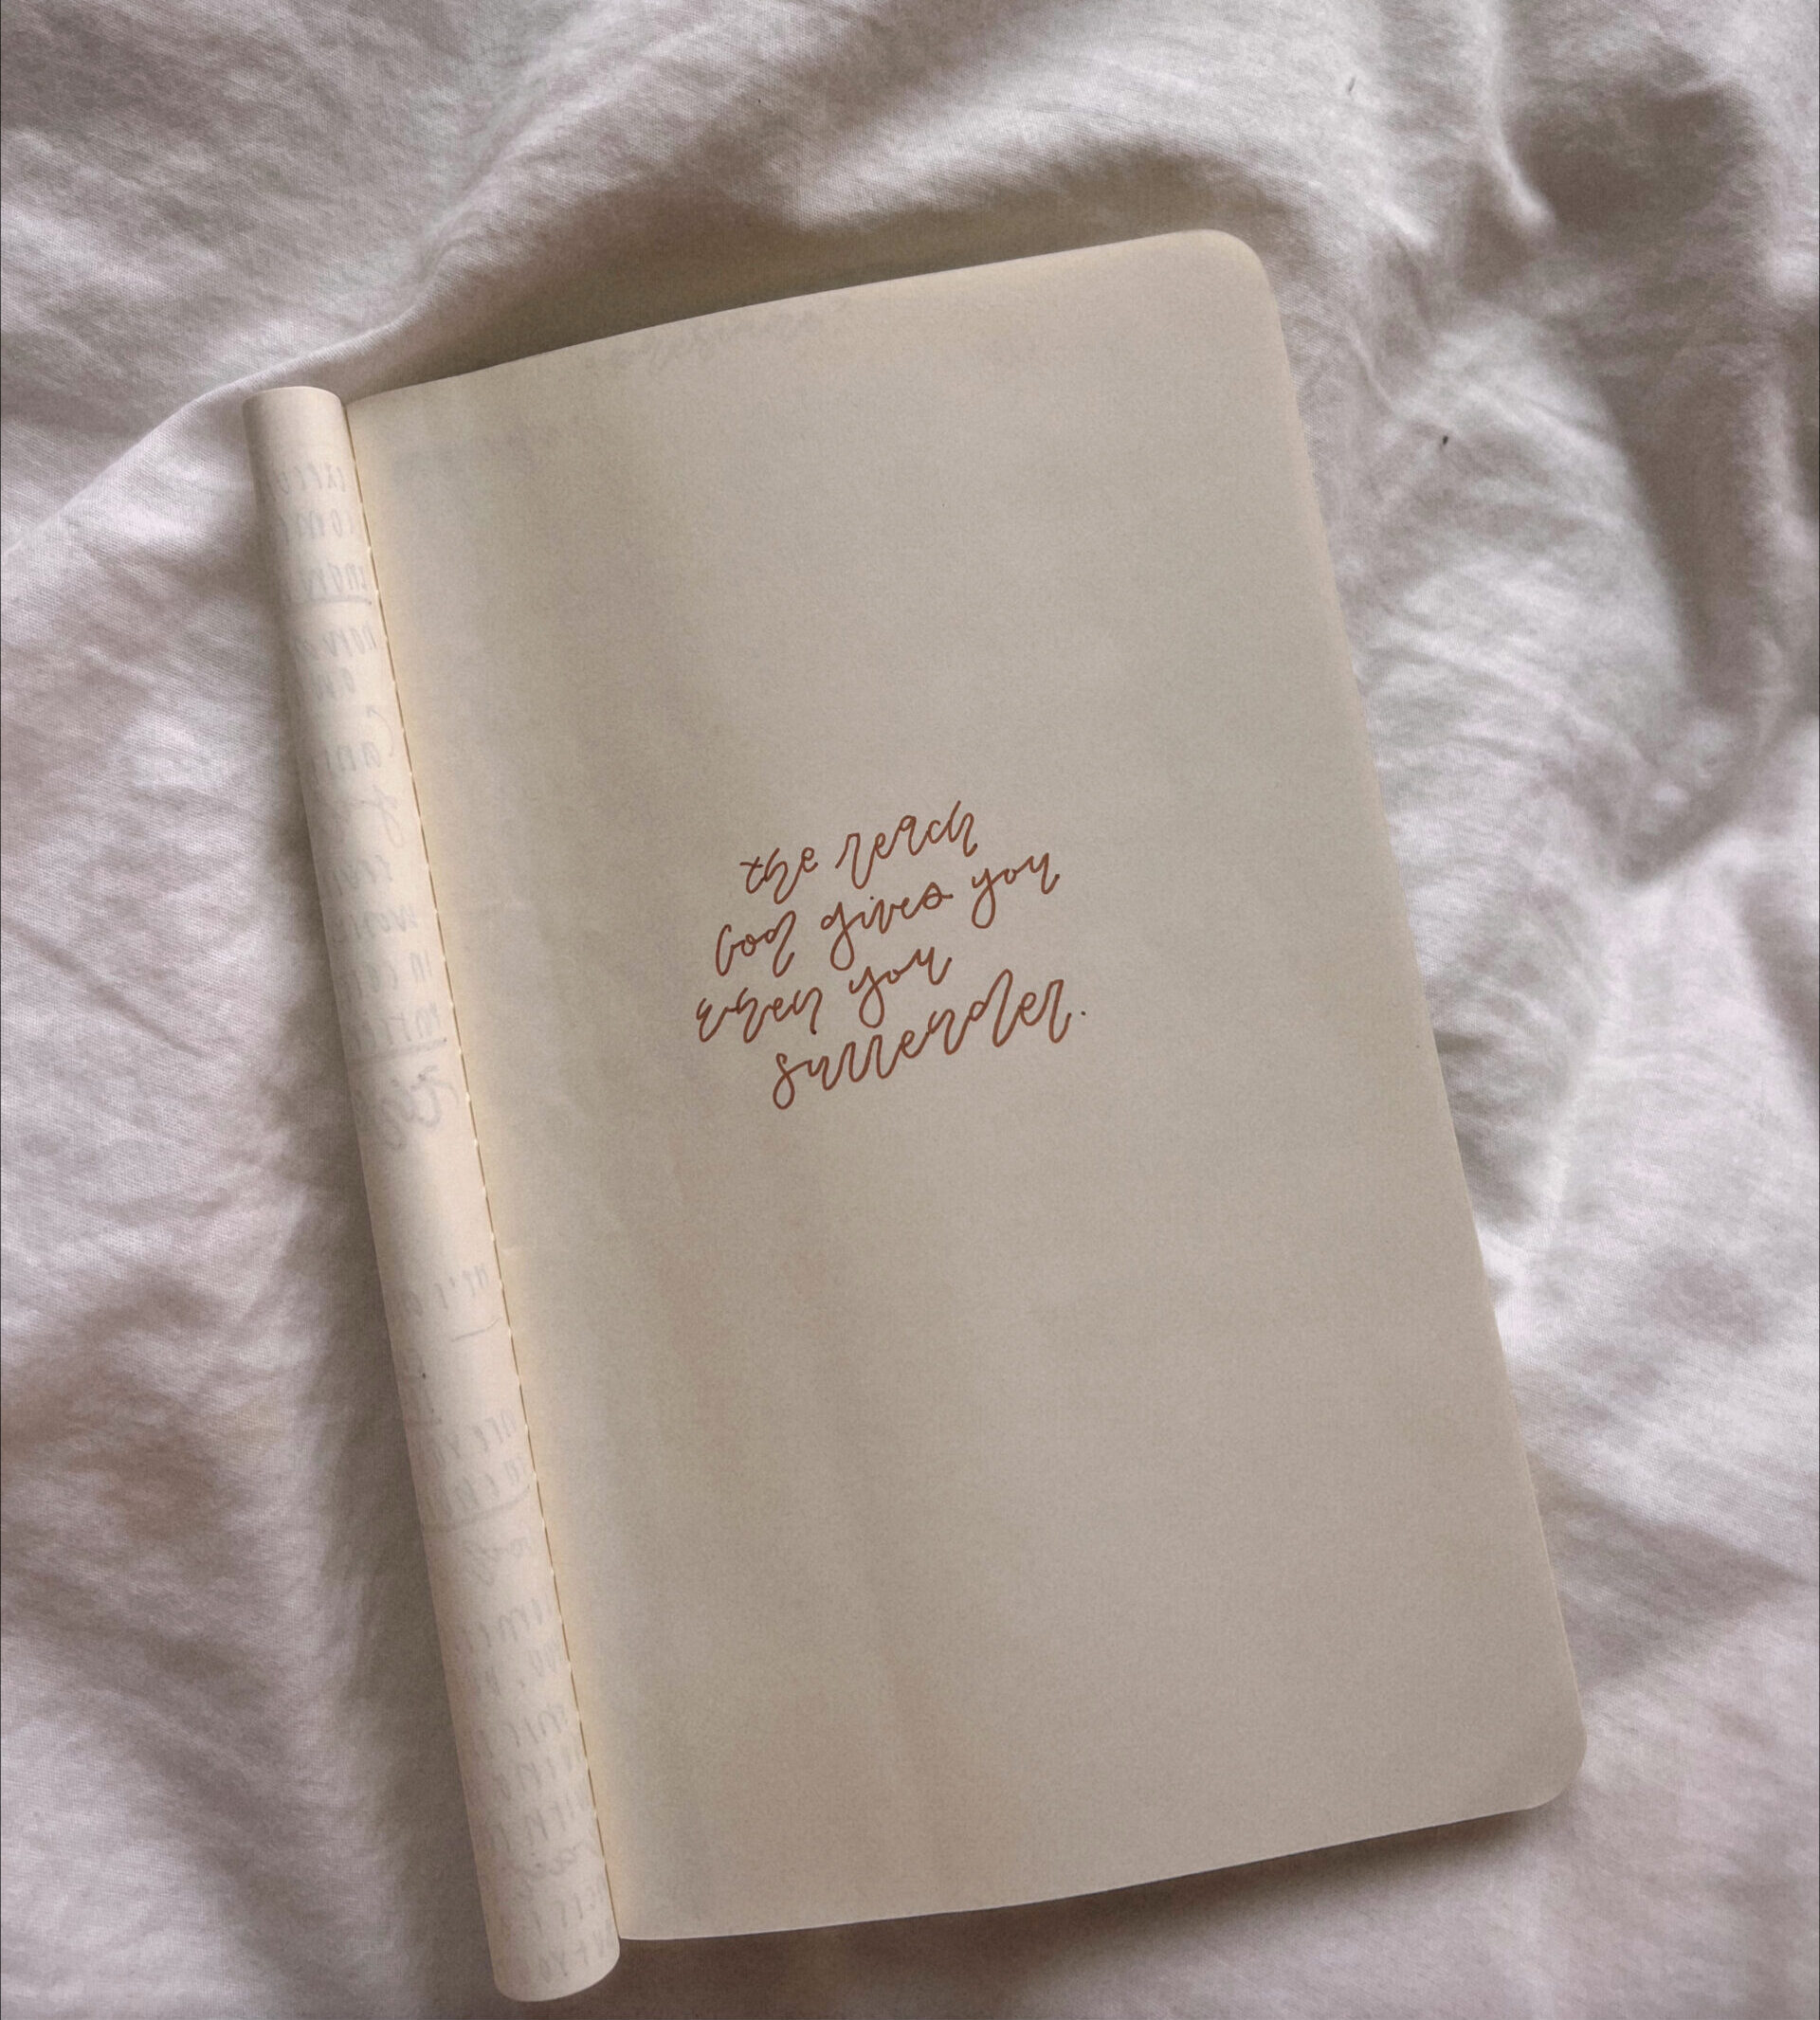 the reach
God gives you
when you
surrender.